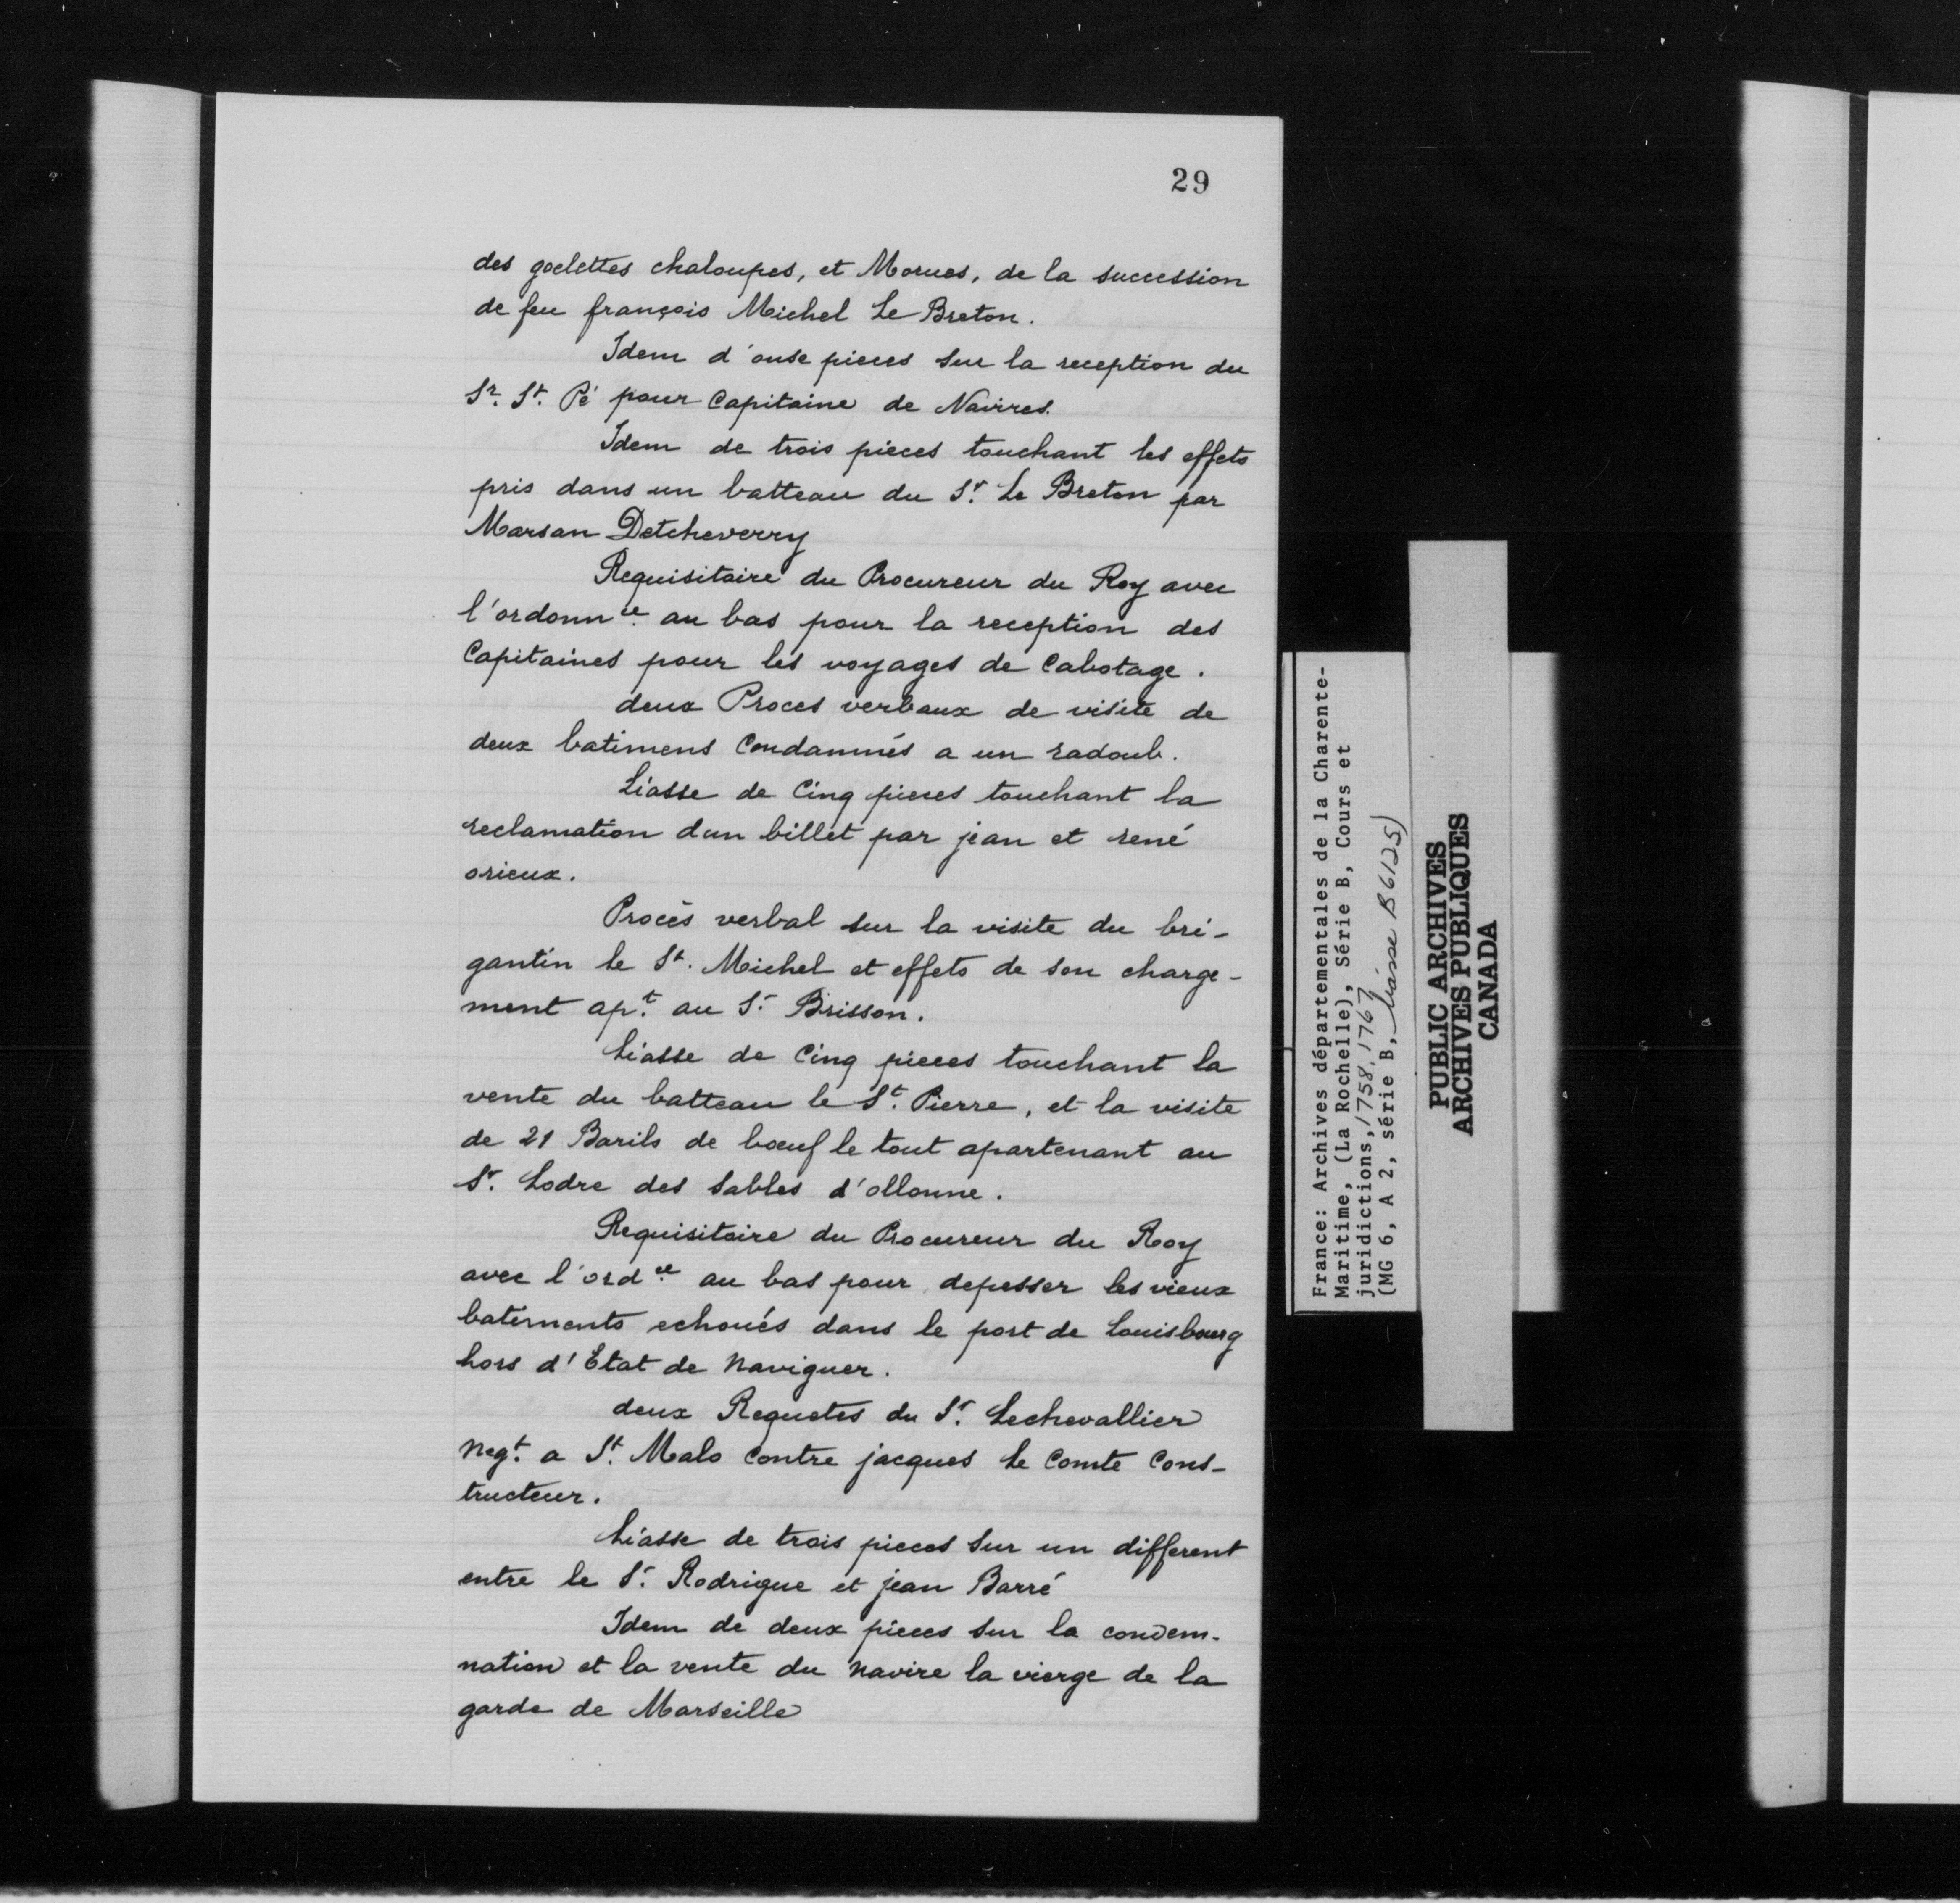 29
des goelettes chaloupes, et Morues, de la succession
de feu françois Michel Le Breton.
Idem d'onse pieces sur la reception du
Sr. St. Pé pour Capitaine de Navires.
Idem de trois pièces touchant les effets
pris dans un batteau du Sr. Le Breton par
Marsan Detcheverry
Requisitaire du Procureur du Roy avec
l'ordonnce. au bas pour la reception des
Capitaines pour les voyages de Cabotage.
deux Proces verbaux de visite de
deux batimens Condamnés a un radoub.
Liasse de Cinq pieces touchant la
reclamation d'un billet par jean et rené
orieux.
Procès verbal sur la visite du bri-
gantin le St. Michel et effets de son charge-
ment apt. au Sr. Brisson.
Liasse de Cinq pieces touchant la
vente du batteau le St. Pierre, et la visite
de 21 Barils de bœuf le tout apartenant au
Sr. Lodre des Sables d'ollonne.
Requisitaire du Procureur du Roy
avec l'ordce. au bas pour depesser les vieux
batiments echoués dans le port de Louisbourg
hors d'Etat de Naviguer.
deux Requetes du Sr. Lechevallier
Negt. a St. Malo Contre jacques Le Comte Cons-
tructeur.
Liasse de trois pieces Sur un different
entre le Sr. Rodrigue et jean Barré
Idem de deux pièces sur la condem-
nation et la vente du Navire la vierge de la
garde de Marseille
France: Archives départementales de la Charente-
Maritime, (La Rochelle), Série B, Cours et
juridictions, 1758, 1767
(MG 6, A 2, série B, liasse B 6125)
PUBLIC ARCHIVES
ARCHIVES PUBLIQUES
CANADA